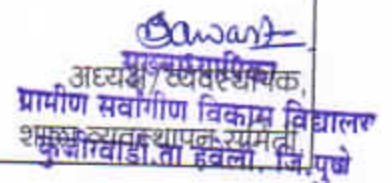 Bawant
मुख्याध्यापिका
अध्यक्ष / व्यवस्थापक,
ग्रामीण सर्वांगीण विकास विद्यालय
शाळा व्यवस्थापन समिती
कुंजीरवाडी, ता हवेली, जि. पुणे